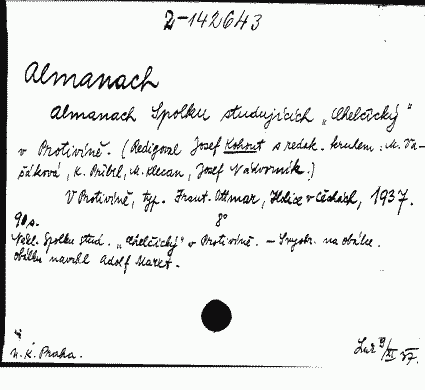 2-142643
Almanach
Almanach Spolku studujících „Chelčický"
v Protivíně. (Redigoval Josef Kohout s redak. kruhem: M. Va-
šáková, K. Přibil, M. Klecan, Josef Nákvorník.)
V Protivíně, typ. Frant. Ottmar, Holice v Čechách, 1937.
90 s. 8°
Nákl. Spolku stud. „Chelčický" v Protivíně. –
na obálce.
Obálku navrhl Adolf
n. K. Praha.